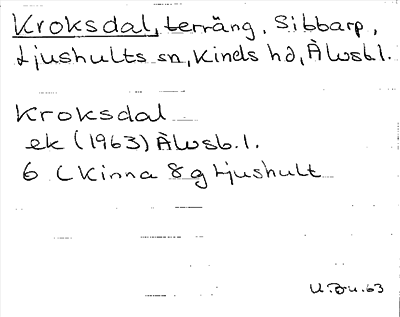 Kroksdal, terräng, Sibbarp,
Ljushults sn, Kinds hd, Älvsbl.
Kroksdal
ek (1963) Älvsb. l.
6 C Kinna 8 g Ljushult
U.Bu.63